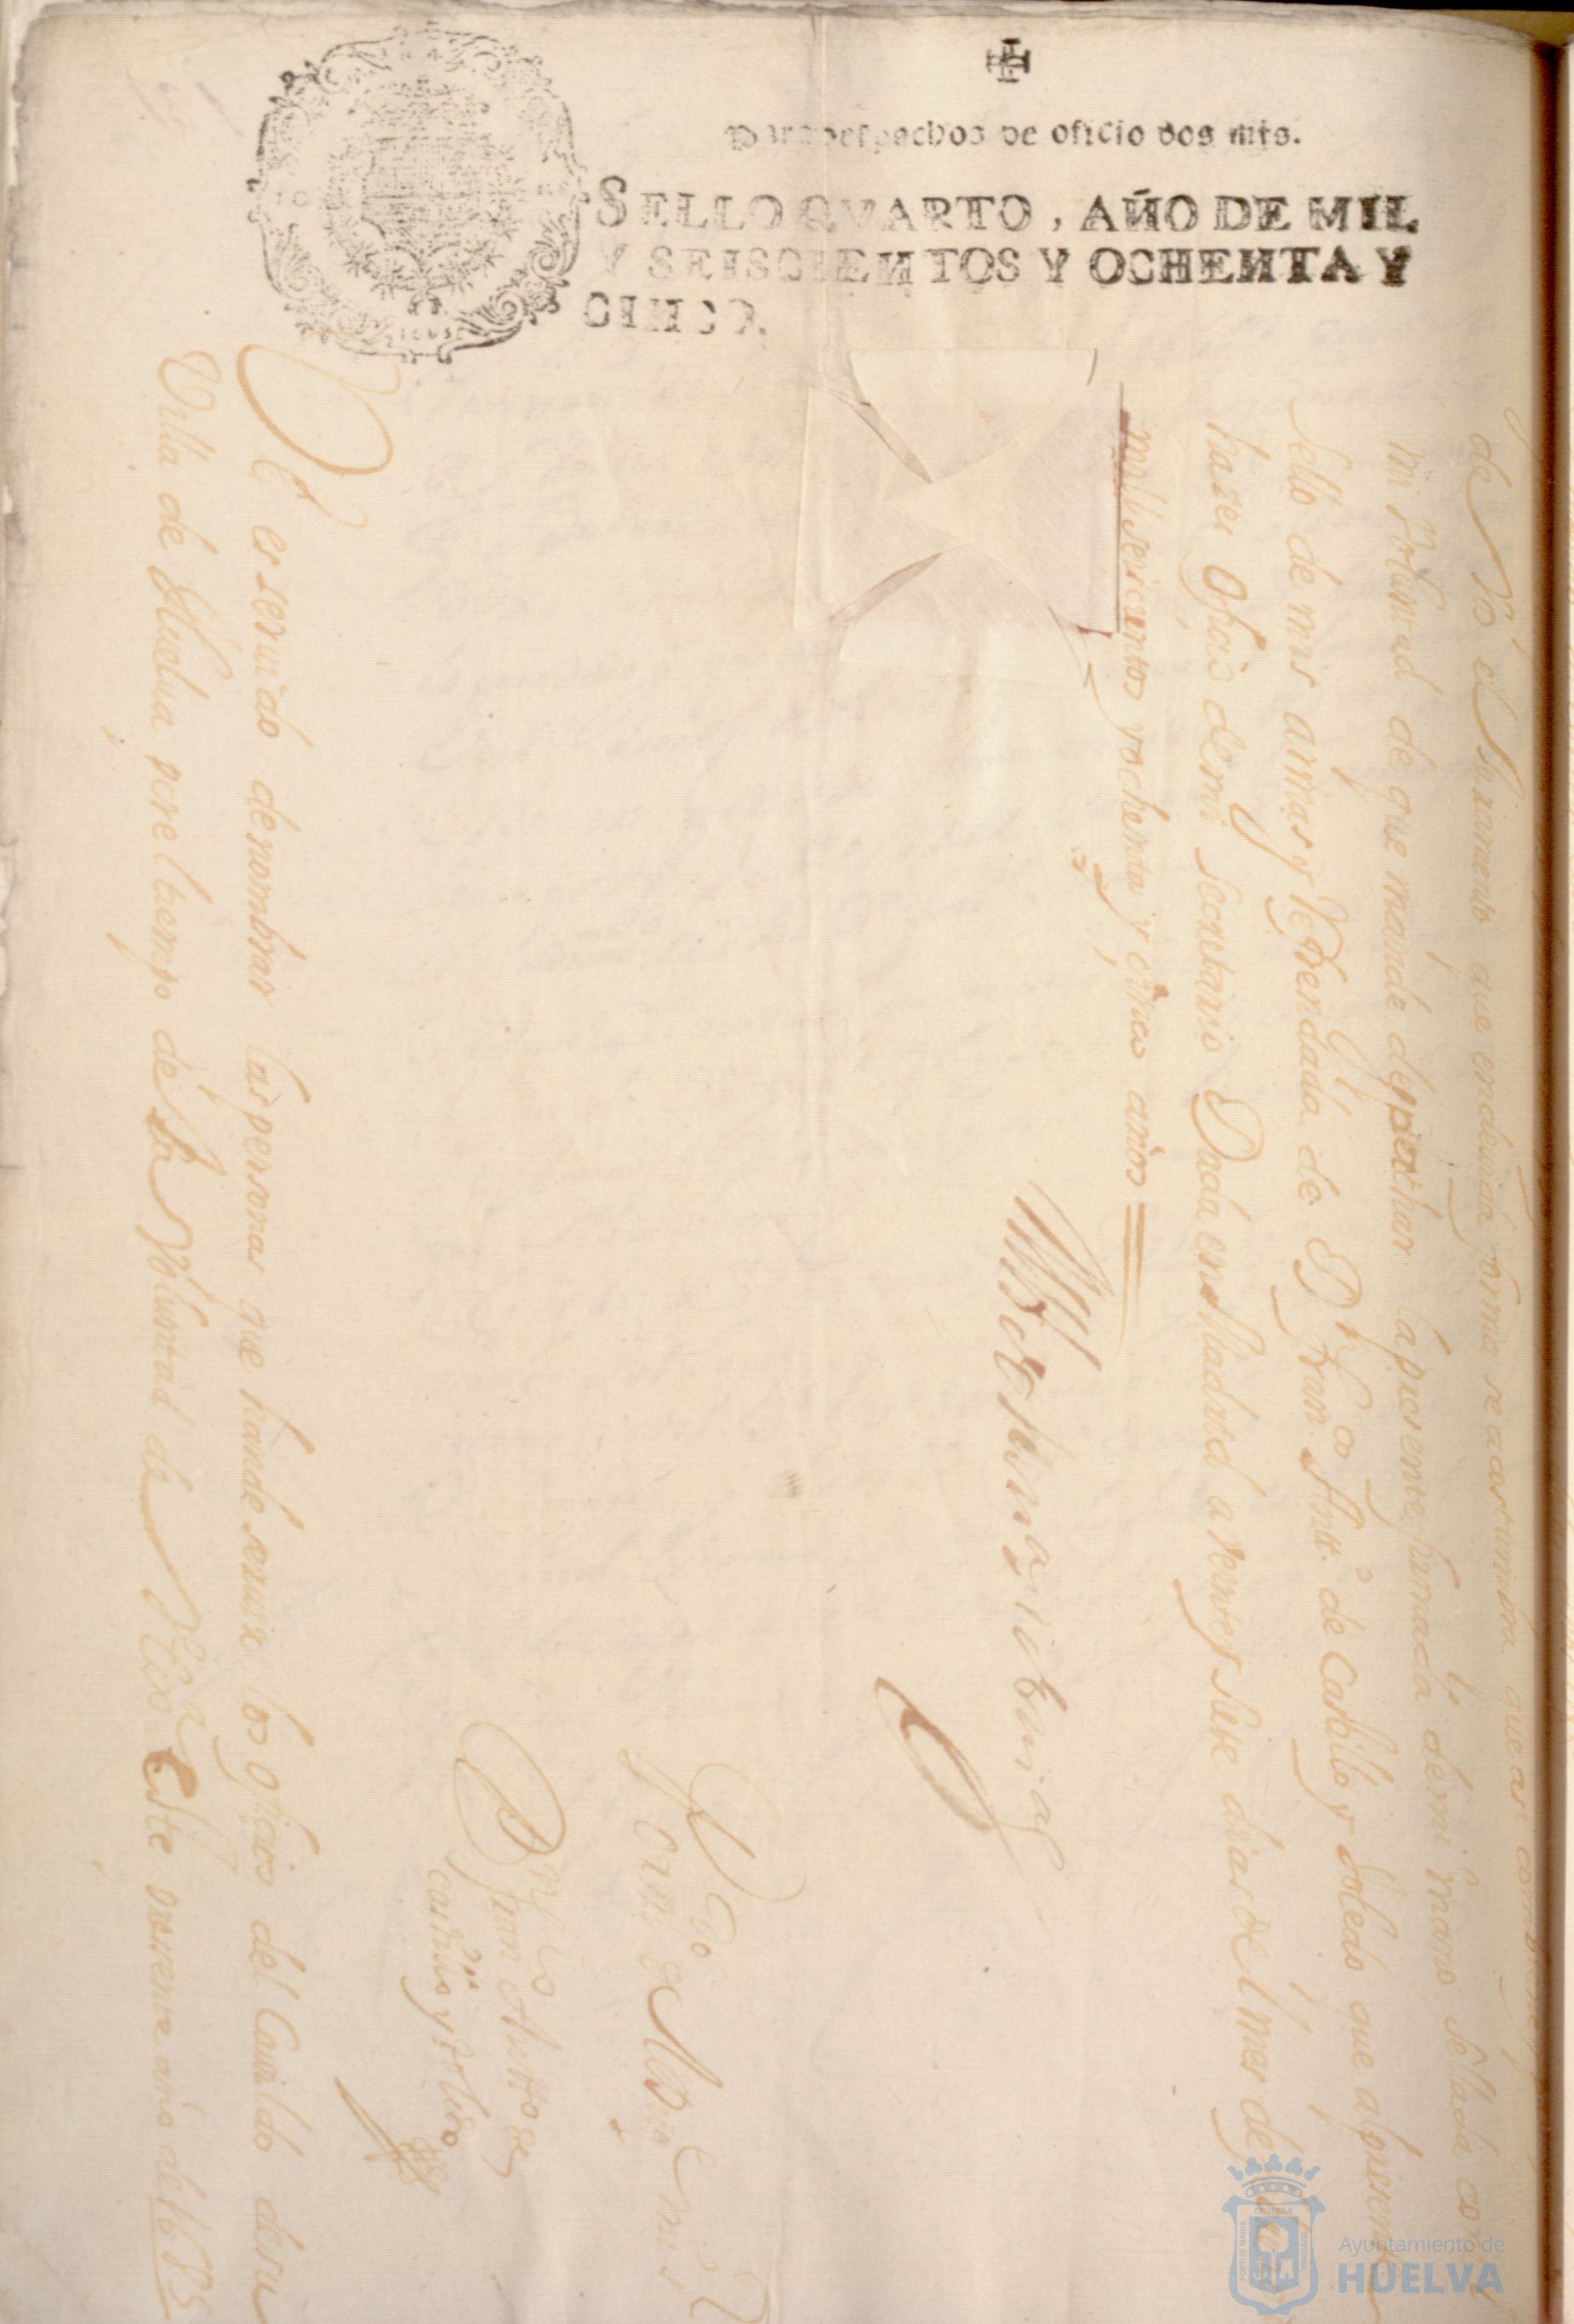 Para despachos de oficio dos mrs.
SELLO QVARTO, AÑO DE MIL
Y SEISCIENTOS Y OCHENTA Y
CINCO.
de Vs. el Juramento que endeuida forma se acostumbra que asi combiene
mi Voluntad de que mande despachar la presente firmada de mi mano sellada con el
sello de mis armas y Refrendada de Dn Franco Antto de Castillo y Toledo que al presente
haze Ofiçio de mi secretario Dada en Madrid a veinte y nueve dias del mes de
mill seiscientos y ochenta y cinco años
Por mdo de Mi Sr
Dn Franco Antto de
Castillo y Toledo
VE es seruido de nombrar las personas que han de seruir los ofiçios del Cauildo de su
Villa de Huelua por el tiempo de su Voluntad de VExa Este presente año de 1685
Ayuntamiento de
HUELVA